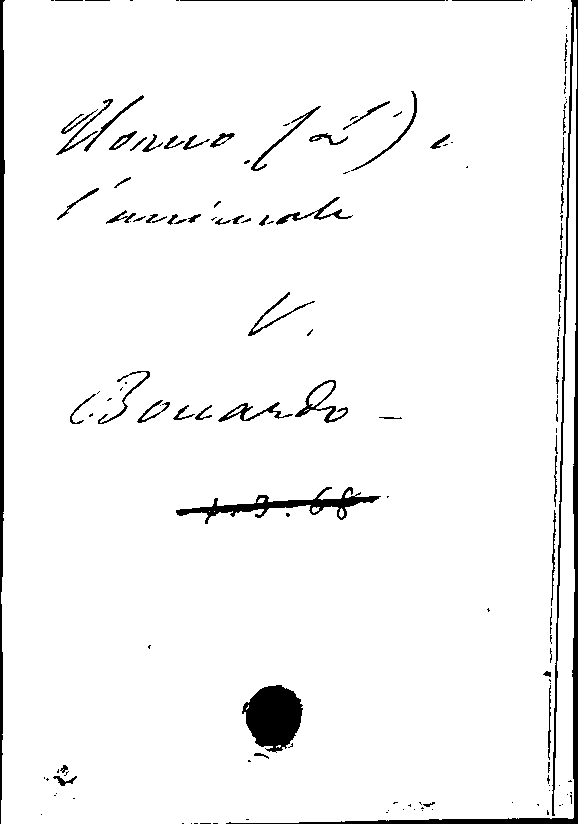 Uomo (L') e
l'animale
V.
Boccardo –
1.3.68